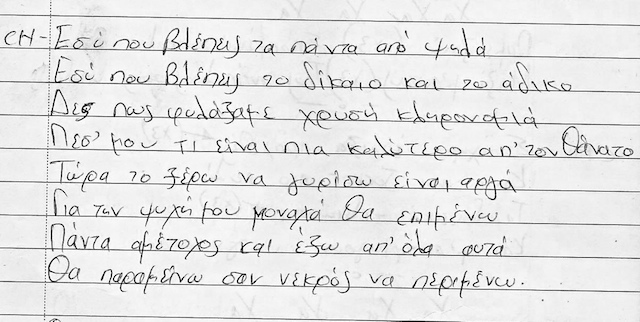 CH- Εσύ που βλέπεις τα πάντα από ψηλά
Εσύ που βλέπεις το δίκαιο και το άδικο
Δες πως φυλάξαμε χρυσή κληρονομιά
Πεσ' μου τι είναι πια καλύτερο απ' τον θάνατο
Τώρα το ξέρω να γυρίσω είναι αργά
Για την ψυχή μου μοναχά θα επιμένω
Πάντα αμέτοχος και έξω απ' όλα αυτά
Θα παραμείνω σαν νεκρός να περιμένω.